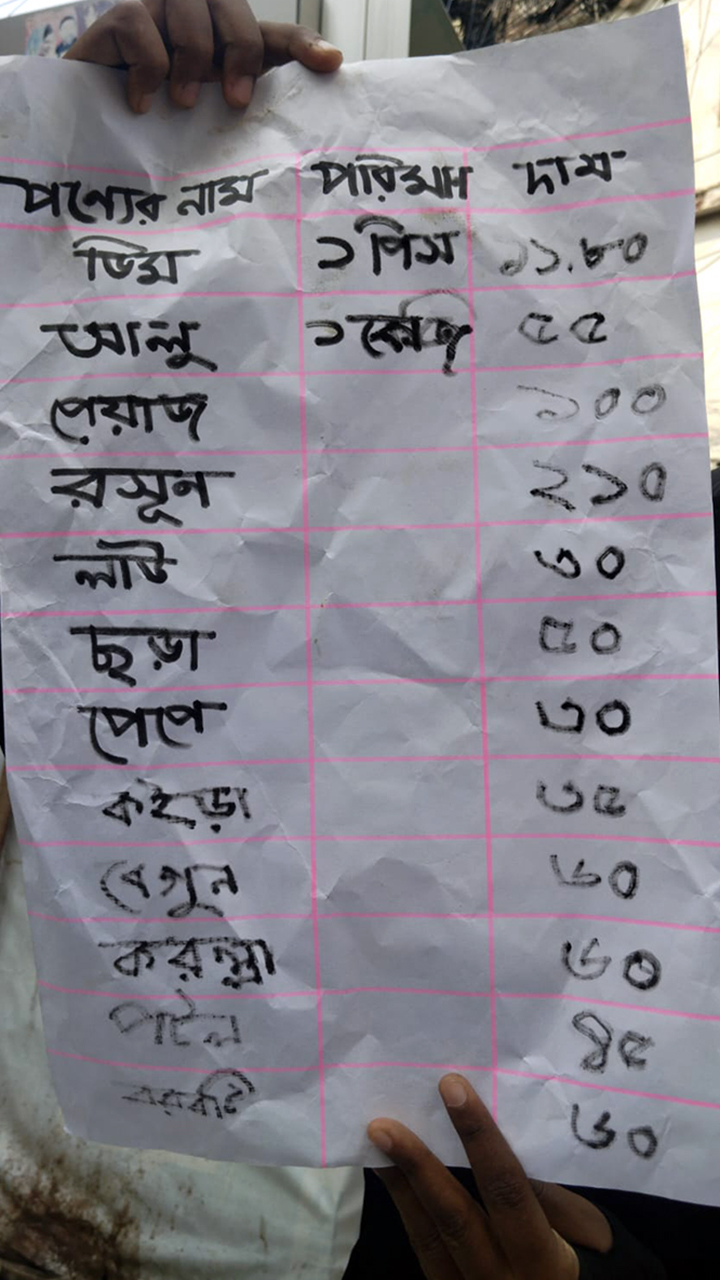 পণ্যের নাম পরিমাণ দাম
ডিম ১ পিস ১১.৮০
আলু ১ কেজি ৫৫
পেয়াজ ১০০
রসূন ২১০
লাউ ৩০
ছড়া ৫০
পেপে ৩০
কইড়া ৩৫
বেগুন ৬০
করল্লা ৬০
পটৈল ৪৫
বরবটি ৬০